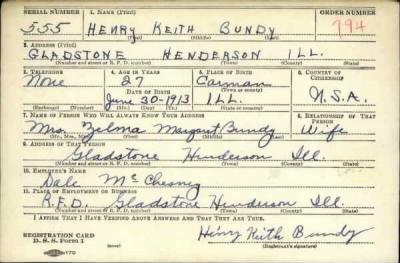 SERIAL NUMBER 1. NAME (Print) ORDER NUMBER
555 HENRY KEITH BUNDY 794
(First) (Middle) (Last)
2. ADDRESS (Print)
GLADSTONE HENDERSON ILL.
(Number and street or R. F. D. number) (Town) (County) (State)
3. TELEPHONE 4. AGE IN YEARS 5. PLACE OF BIRTH 6. COUNTRY OF CITIZENSHIP
None 27 Carman
DATE OF BIRTH (Town or county)
June 30-1913 ILL. U.S.A.
(Exchange) (Number) (Mo.) (Day) (Yr.) (State or country)
7. NAME OF PERSON WHO WILL ALWAYS KNOW YOUR ADDRESS 8. RELATIONSHIP OF THAT PERSON
Mrs. Zelma Margaret Bundy Wife
(Mr., Mrs., Miss) (First) (Middle) (Last)
9. ADDRESS OF THAT PERSON
Gladstone Henderson Ill.
(Number and street or R. F. D. number) (Town) (County) (State)
10. EMPLOYER'S NAME
Dale McChesney
11. PLACE OF EMPLOYMENT OR BUSINESS
R.F.D. Gladstone Henderson Ill.
(Number and street or R. F. D. number) (Town) (County) (State)
I AFFIRM THAT I HAVE VERIFIED ABOVE ANSWERS AND THAT THEY ARE TRUE.
REGISTRATION CARD
D. S. S. Form 1 Henry Keith Bundy
(Registrant's signature)